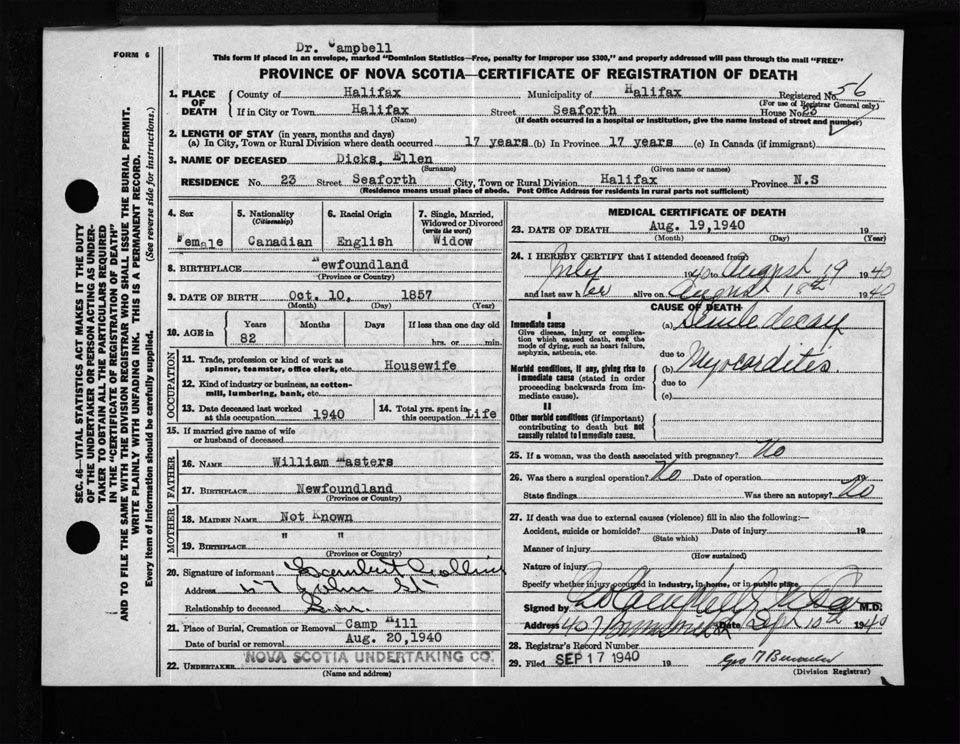 Dr. Campbell
FORM 6
This form if placed in an envelope, marked "Dominion Statistics—Free, penalty for improper use $300," and properly addressed will pass through the mail "FREE"
PROVINCE OF NOVA SCOTIA—CERTIFICATE OF REGISTRATION OF DEATH
SEC. 46—VITAL STATISTICS ACT MAKES IT THE DUTY
OF THE UNDERTAKER OR PERSON ACTING AS UNDER-
TAKER TO OBTAIN ALL THE PARTICULARS REQUIRED
IN THE "CERTIFICATE OF REGISTRATION OF DEATH"
AND TO FILE THE SAME WITH THE DIVISION REGISTRAR WHO SHALL ISSUE THE BURIAL PERMIT.
WRITE PLAINLY WITH UNFADING INK. THIS IS A PERMANENT RECORD.
Every item of information should be carefully supplied. (See reverse side for instructions.)
1. PLACE OF DEATH
County of Halifax Municipality of Halifax Registered No. 56
(For use of Registrar General only)
If in City or Town Halifax Street Seaforth House No. 23
(Name) (If death occurred in a hospital or institution, give the name instead of street and number)
2. LENGTH OF STAY (in years, months and days)
(a) In City, Town or Rural Division where death occurred 17 years (b) In Province 17 years (c) In Canada (if immigrant)
3. NAME OF DECEASED Dicks, Ellen
(Surname) (Given name or names)
RESIDENCE No. 23 Street Seaforth City, Town or Rural Division Halifax Province N.S
(Residence means usual place of abode. Post Office Address for residents in rural parts not sufficient)
4. Sex Female
5. Nationality (Citizenship) Canadian
6. Racial Origin English
7. Single, Married, Widowed or Divorced (write the word) Widow
8. BIRTHPLACE Newfoundland
(Province or Country)
9. DATE OF BIRTH Oct. 10, 1857
(Month) (Day) (Year)
10. AGE in Years Months Days If less than one day old
82 hrs. or min.
OCCUPATION
11. Trade, profession or kind of work as spinner, teamster, office clerk, etc. Housewife
12. Kind of industry or business, as cotton-mill, lumbering, bank, etc.
13. Date deceased last worked at this occupation 1940
14. Total yrs. spent in this occupation Life
15. If married give name of wife or husband of deceased
FATHER
16. NAME William Masters
17. BIRTHPLACE Newfoundland
(Province or Country)
MOTHER
18. MAIDEN NAME Not Known
19. BIRTHPLACE " "
(Province or Country)
20. Signature of informant Collins
Address 57 John St.
Relationship to deceased Son.
21. Place of Burial, Cremation or Removal Camp Hill
Date of burial or removal Aug. 20,1940
22. UNDERTAKER NOVA SCOTIA UNDERTAKING CO.
(Name and address)
MEDICAL CERTIFICATE OF DEATH
23. DATE OF DEATH Aug. 19,1940 19
(Month) (Day) (Year)
24. I HEREBY CERTIFY that I attended deceased from:
July 1940 to August 19 1940
and last saw her alive on August 18th 1940
CAUSE OF DEATH
I
Immediate cause
Give disease, injury or complication which caused death, not the mode of dying, such as heart failure, asphyxia, asthenia, etc.
(a) Senile decay
due to
Morbid conditions, if any, giving rise to immediate cause (stated in order proceeding backwards from immediate cause).
(b) Myocarditis.
due to
(c)
II
Other morbid conditions (if important) contributing to death but not causally related to immediate cause.
25. If a woman, was the death associated with pregnancy? No
26. Was there a surgical operation? No Date of operation 19
State findings Was there an autopsy? No
27. If death was due to external causes (violence) fill in also the following:—
Accident, suicide or homicide? Date of injury 19
(State which)
Manner of injury
(How sustained)
Nature of injury
Specify whether injury occurred in industry, in home, or in public place
Signed by Campbell M.D.
Address 407 Date Sept 10th 1940
28. Registrar's Record Number
29. Filed SEP 17 1940 19
(Division Registrar)